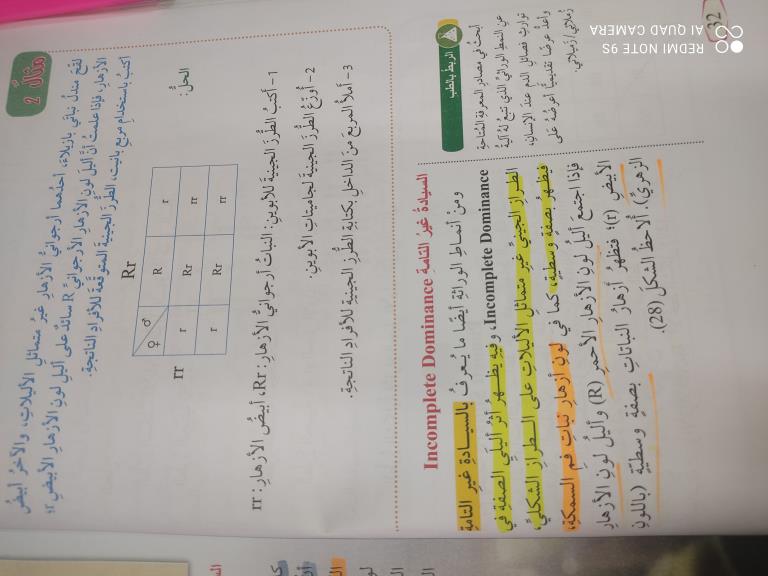 مثال 2
لقح مندل نباتي بازيلاء، أحدهما أرجواني الأزهار غير متماثل الأليلات، والآخر أبيض
الأزهار، فإذا علمت أن أليل لون الأزهار الأرجواني R سائد على أليل لون الأزهار الأبيض r؛
أكتب باستخدام مربع بانيت، الطرز الجينية المتوقعة للأفراد الناتجة.
الحل:
1- أكتب الطرز الجينية للأبوين: النبات أرجواني الأزهار: Rr، أبيض الأزهار: rr
2- أوزع الطرز الجينية لجاميتات الأبوين.
3- أملأ المربع من الداخل بكتابة الطرز الجينية للأفراد الناتجة.
Rr
♂ ♀ R r
rr
r Rr rr
r Rr rr
السيادة غير التامة Incomplete Dominance
ومن أنماط الوراثة أيضا ما يعرف بالسيادة غير التامة
Incomplete Dominance، وفيه يظهر أثر أليلي الصفة في
الطراز الجيني غير متماثل الأليلات على الطراز الشكلي،
فيظهر بصفة وسطية، كما في لون أزهار نبات فم السمكة،
فإذا اجتمع أليل لون الأزهار الأحمر (R) وأليل لون الأزهار
الأبيض (r)؛ فتظهر أزهار النباتات بصفة وسطية (باللون
الزهري). ألاحظ الشكل (28).
الربط بالطب
أبحث في مصادر المعرفة المتاحة
عن النمط الوراثي الذي تتبع له آلية
توارث فصائل الدم عند الإنسان،
وأعد عرضا تقديميا أعرضه على
زملائي/ زميلاتي.
32
REDMI NOTE 9S
AI QUAD CAMERA